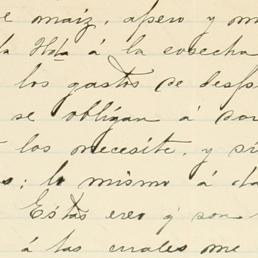 e maiz, apero y m
la Hda á la cosecha
los gastos se desp
se obligan á
los necesite, y si
s; lo mismo á da
Estas creo q son
á las cuales me